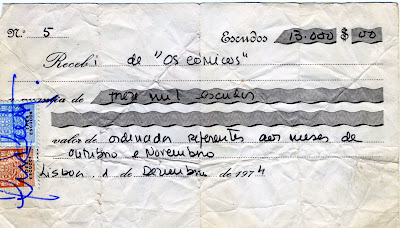 N.º 5 Escudos 13.000 $ 00
Recebi de "Os comicos"
a quantia de treze mil escudos
valor de ordenados referentes aos meses de
outubro e Novembro
Lisboa, 1 de Dezembro de 1974